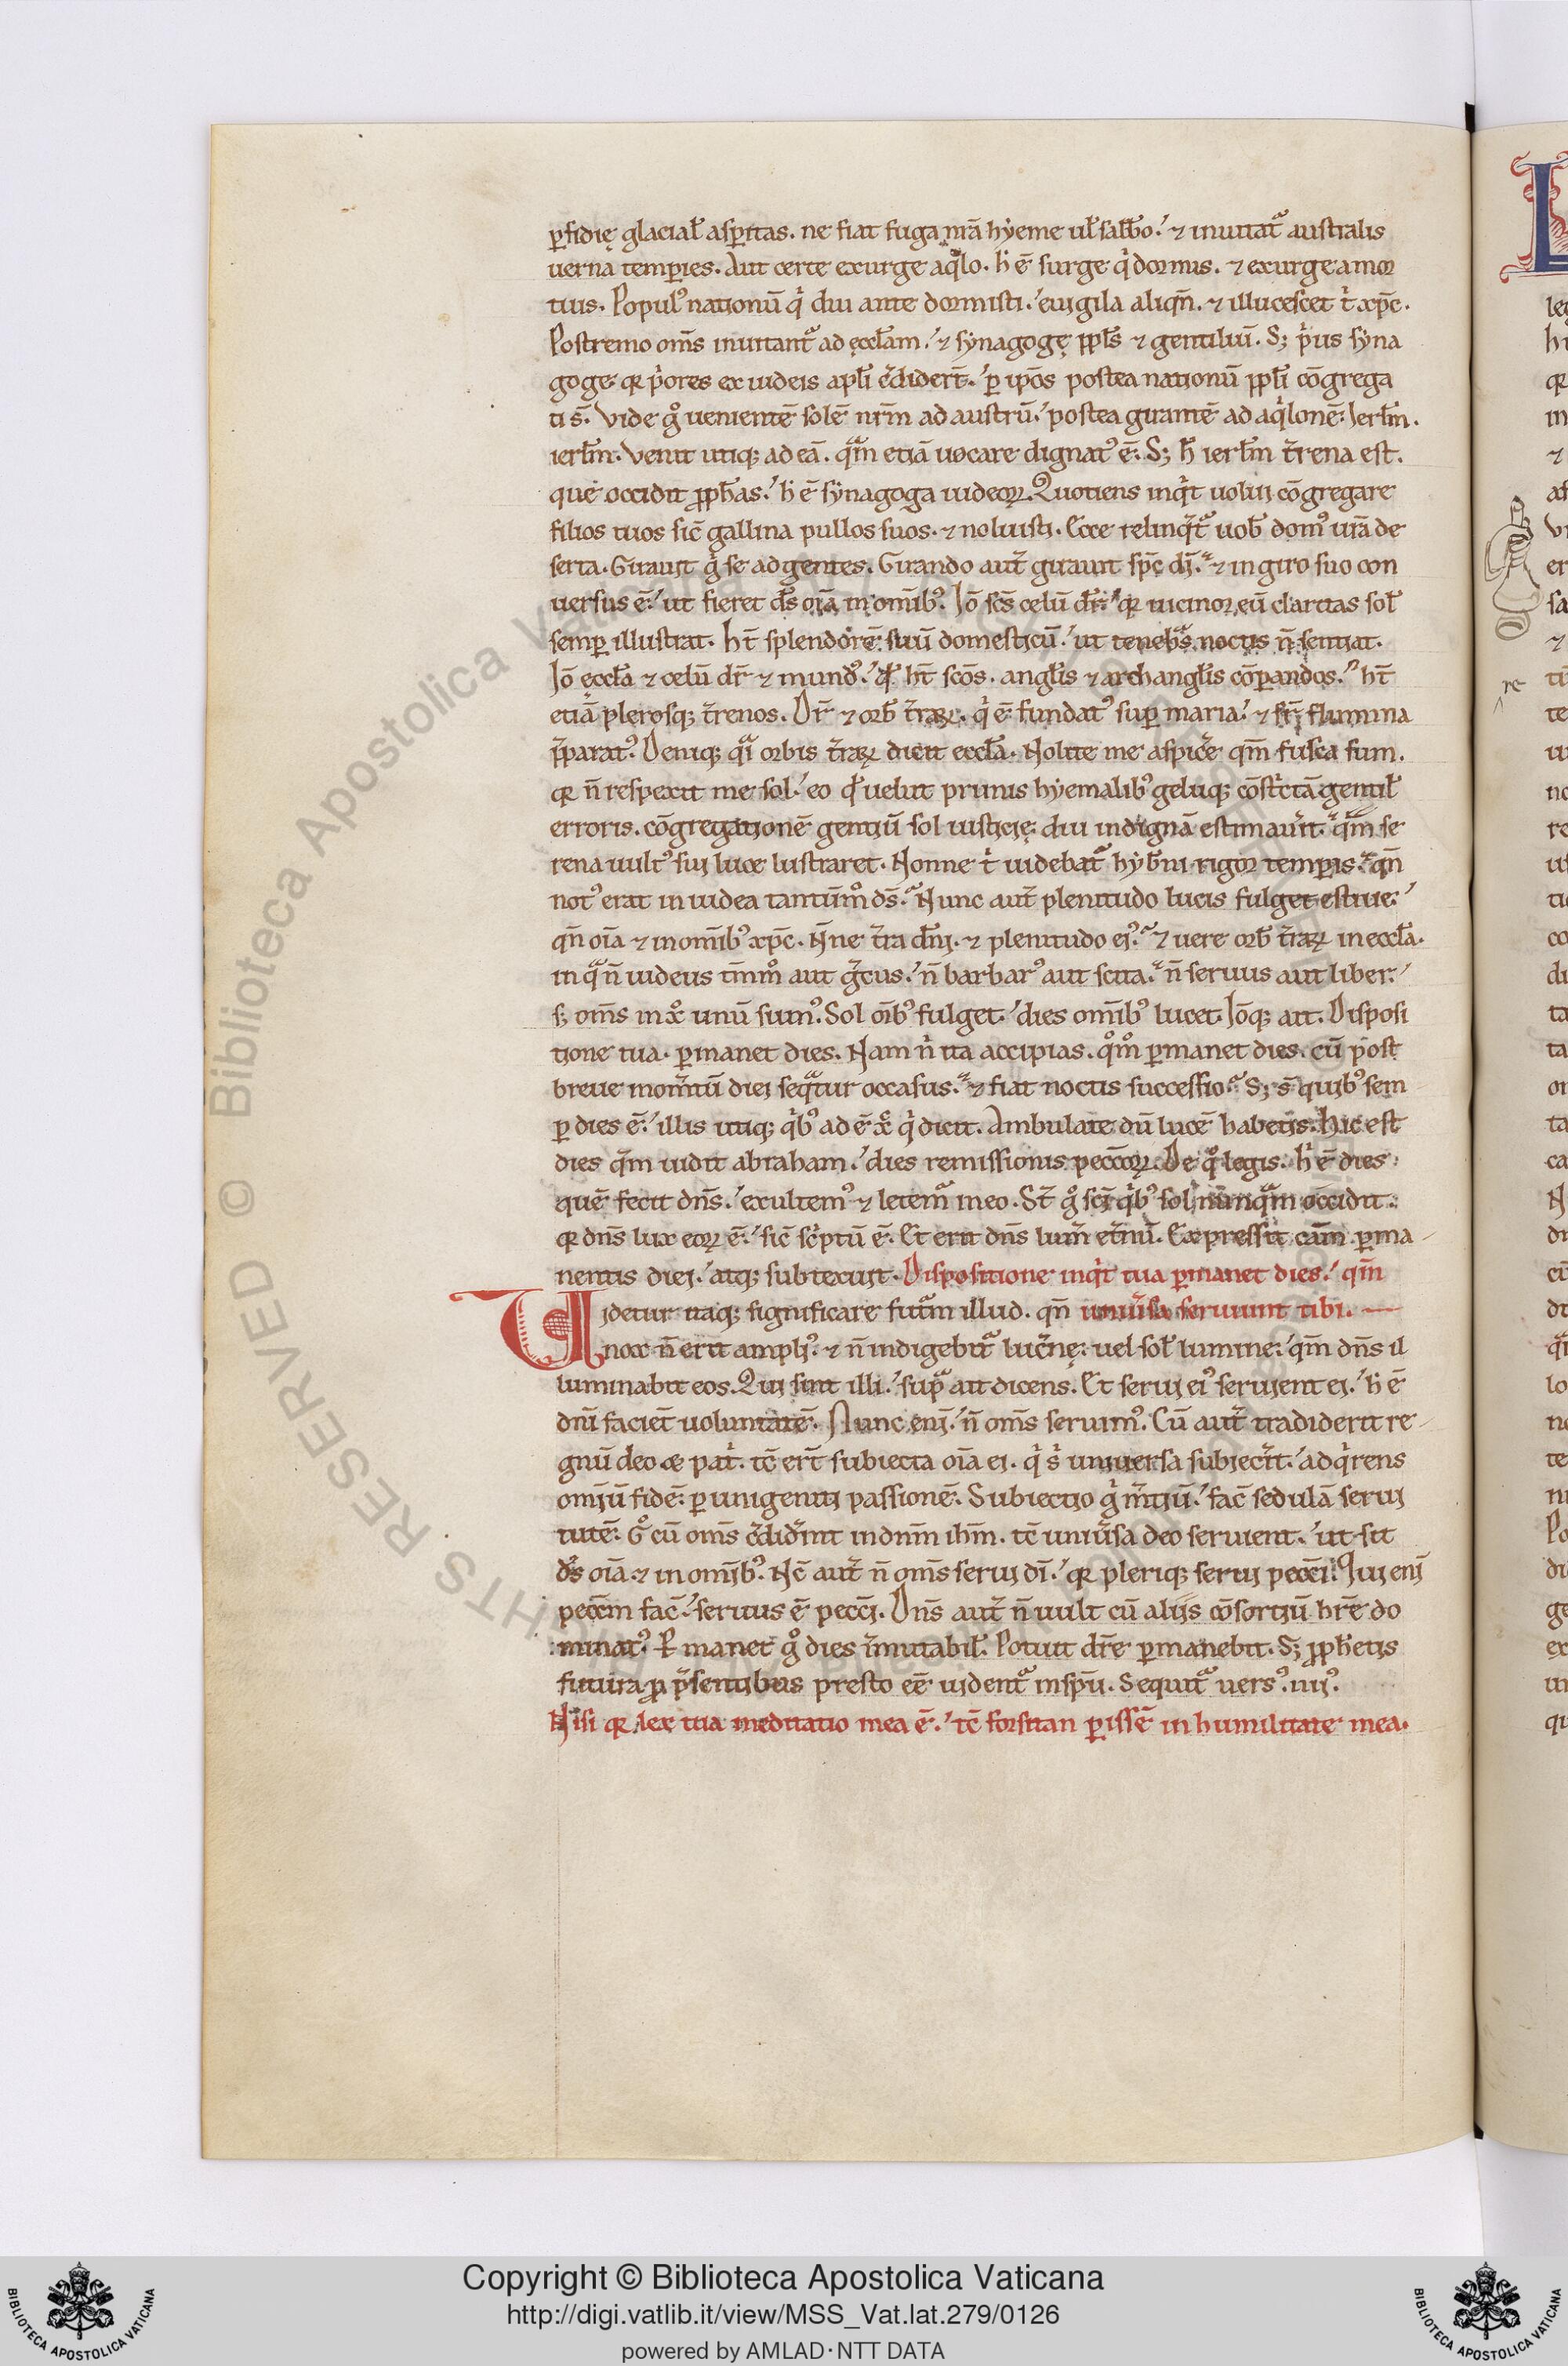 ꝑfidię glacial̄ asꝑitas. ne fiat fuga nr̄a hẏeme ul̄ sabb̄o. ⁊ inuitat᷑ australis
uerna temꝑies. Aut certe exurge aqͥlo. h̄ ē surge qͥ dormis. ⁊ exurge a mor
tuis. Popul᷒ nationū qͥ diu ante dormisti. euigila aliqn̄. ⁊ illucescet tͥ xp̄c.
Postremo om̄s inuitant᷑ ad ęccl̄am. ⁊ sẏnagogę ppl̄s ⁊ gentiliū. S; pͥus sẏna
goge qr pͥores ex iudeis apl̄i c̄didert̄. ꝑ ip̄os postea nationū ppl̄i cōgrega
ti s̄. Vide gͦ uenientē solē nr̄m ad austrū. postea girantē ad aqͥlonē. Ierl̄m.
ierl̄m. Venit utiq; ad eā. qᵃm etiā uocare dignat᷒ ē. S; h̄ ierl̄m t̄rena est.
que occidit ꝓph̄as. h̄ ē sẏnagoga iudeoꝝ. Quotiens inqͥt uolui cōgregare
filios tuos sic̄ gallina pullos suos. ⁊ noluisti. Ecce relinqͥt᷑ uob̄ dom᷒ ur̄a de
serta. Girauit gͦ se ad gentes. Girando aut̄ girauit sp̄c dī. ⁊ in giro suo con
uersus ē. ut fieret d̄s oīa in omīb᷒. Iō sc̄s celū dr̄. qr uicinoꝝ eū claritas sol̄
semꝑ illustrat. Ht̄ splendorē suū domesticū. ut tenebᵃs noctis n̄ sentiat.
Iō eccl̄a ⁊ celū dr̄ ⁊ mund᷒. qd̄ ht̄ scōs. angl̄is ⁊ archangl̄is cōꝑandos. ht̄
etiā plerosq; t̄renos. Dr̄ ⁊ orb̄ t̄raꝝ. qͥ ē fundat᷒ suꝑ maria. ⁊ flumina
p̄parat᷒. Deniq; qͣi orbis t̄raꝝ dicit eccl̄a. Nolite me aspic̄e qm̄ fusca sum.
qr n̄ respexit me sol. eo qd̄ uelut pruinis hẏemalib᷒ geluq; cōstͥctā gentil̄
erroris. cōgregationē gentiū sol iusticię diu indignā estimauīt. qᵃm se
rena uult᷒ sui luce lustraret. Nonne tͥ uidebat᷑ hẏb̄ni rigor temꝑis. qn̄
not᷒ erat in iudea tantūmͦ ds̄. Nunc aut̄ plenitudo lucis fulget estiue.
qn̄ oīa ⁊ in omīb᷒ xp̄c. N̄ne t̄ra dn̄i. ⁊ plenitudo ei᷒. ⁊ uere orb̄ t̄raꝝ in eccl̄a.
in qᵃ n̄ iudeus tm̄mͦ aut gͤcus. n̄ barbar᷒ aut scita. n̄ seruus aut liber.
s; om̄s in xͦ unū sum᷒. Sol oīb᷒ fulget. dies omīb᷒ lucet. Iōq; ait. Disposi
tione tua. ꝑmanet dies. Nam nͥ ita accipias. qͦmͦ ꝑmanet dies. cū post
breue mom̄tū diei seqᵃtur occasus. ⁊ fiat noctis successio. S; s̄ quib᷒ sem
ꝑ dies ē. illis utiq; qͥb᷒ ad ē xͨ qͥ dicit. Ambulate dū lucē habetis. Hic est
dies qᵃm uidit abraham. dies remissionis pecc̄oꝝ. De qͦ legis. h̄ ē dies
quē fecit dn̄s. exultem᷒ ⁊ letem᷑ in eo. St̄ gͦ sc̄i qͥb᷒ sol nūnqᵃm occidit.
qr dn̄s lux eoꝝ ē. sic̄ scͥptū ē. Et erit dn̄s lum̄ et̄nū. Expressit cām ꝑma
nentis diei. atq; subtexuit. Dispositione inqͥt tua ꝑmanet dies. qm̄
Videtur itaq; significare fut᷑m illud. qn̄ uniūsa seruiunt tibi.
nox n̄ erit ampli᷒. ⁊ n̄ indigebit᷑ luc̄nę uel sol̄ lumine. qm̄ dn̄s il
luminabit eos. Qui sint illi. supᵃ ait dicens. Et serui ei᷒ seruient ei. h̄ ē
dn̄i faciet uoluntatē. Nunc enī n̄ om̄s seruim᷒. Cū aut̄ tradiderit re
gnū deo ⁊ patͥ. tc̄ ert̄ subiecta oīa ei. qͥ sͥ uniuersa subiecīt. adqͥrens
omiū fidē ꝑ unigeniti passionē. Subiectio gͦ m̄tiū. fac̄ sedulā serui
tutē. Gͦ cū om̄s c̄didīnt in dnm̄ ihm̄. tc̄ uniūsa deo seruient. ut sit
ds̄ oīa ⁊ in omīb᷒. Nc̄ aut̄ n̄ om̄s serui dī. qr pleriq; serui pecc̄i. Qui enī
pecc̄m fac̄. seruus ē pecc̄i. Dn̄s aut̄ n̄ uult cū aliis cōsortiū hr̄e do
minat᷒. Ꝑmanet gͦ dies īmutabil̄. Potuit dr̄e ꝑmanebit. S; ꝓphetis
futura ꝓ p̄sentibus presto eē uident᷑ in sp̄u. Sequit᷑ uers᷒. iiii᷒.
Nisi qr lex tua meditatio mea ē. tc̄ forsitan ꝑissē in humilitate mea.
Copyright © Biblioteca Apostolica Vaticana
http://digi.vatlib.it/view/MSS_Vat.lat.279/0126
powered by AMLAD·NTT DATA